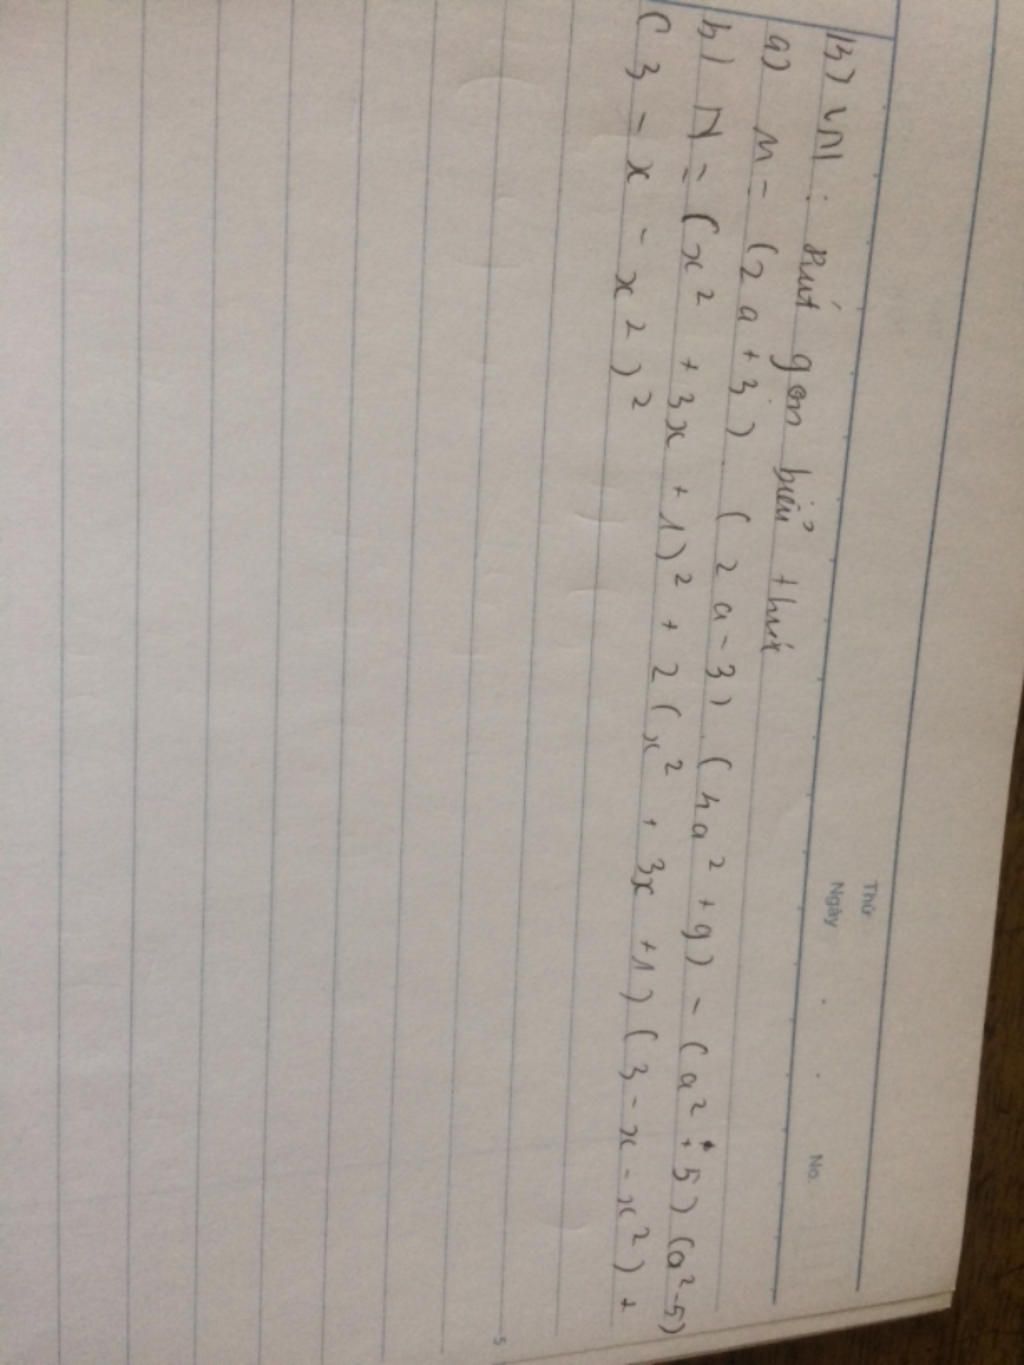 Thứ
Ngày . . No.
B) VN : Rút gọn biểu thức
a) M = (2a+3) (2a-3) (4a² +9) - (a²+5) (a²-5)
b) N = (x² +3x +1)² + 2(x² + 3x +1) (3-x-x²) +
(3-x-x²)²
5